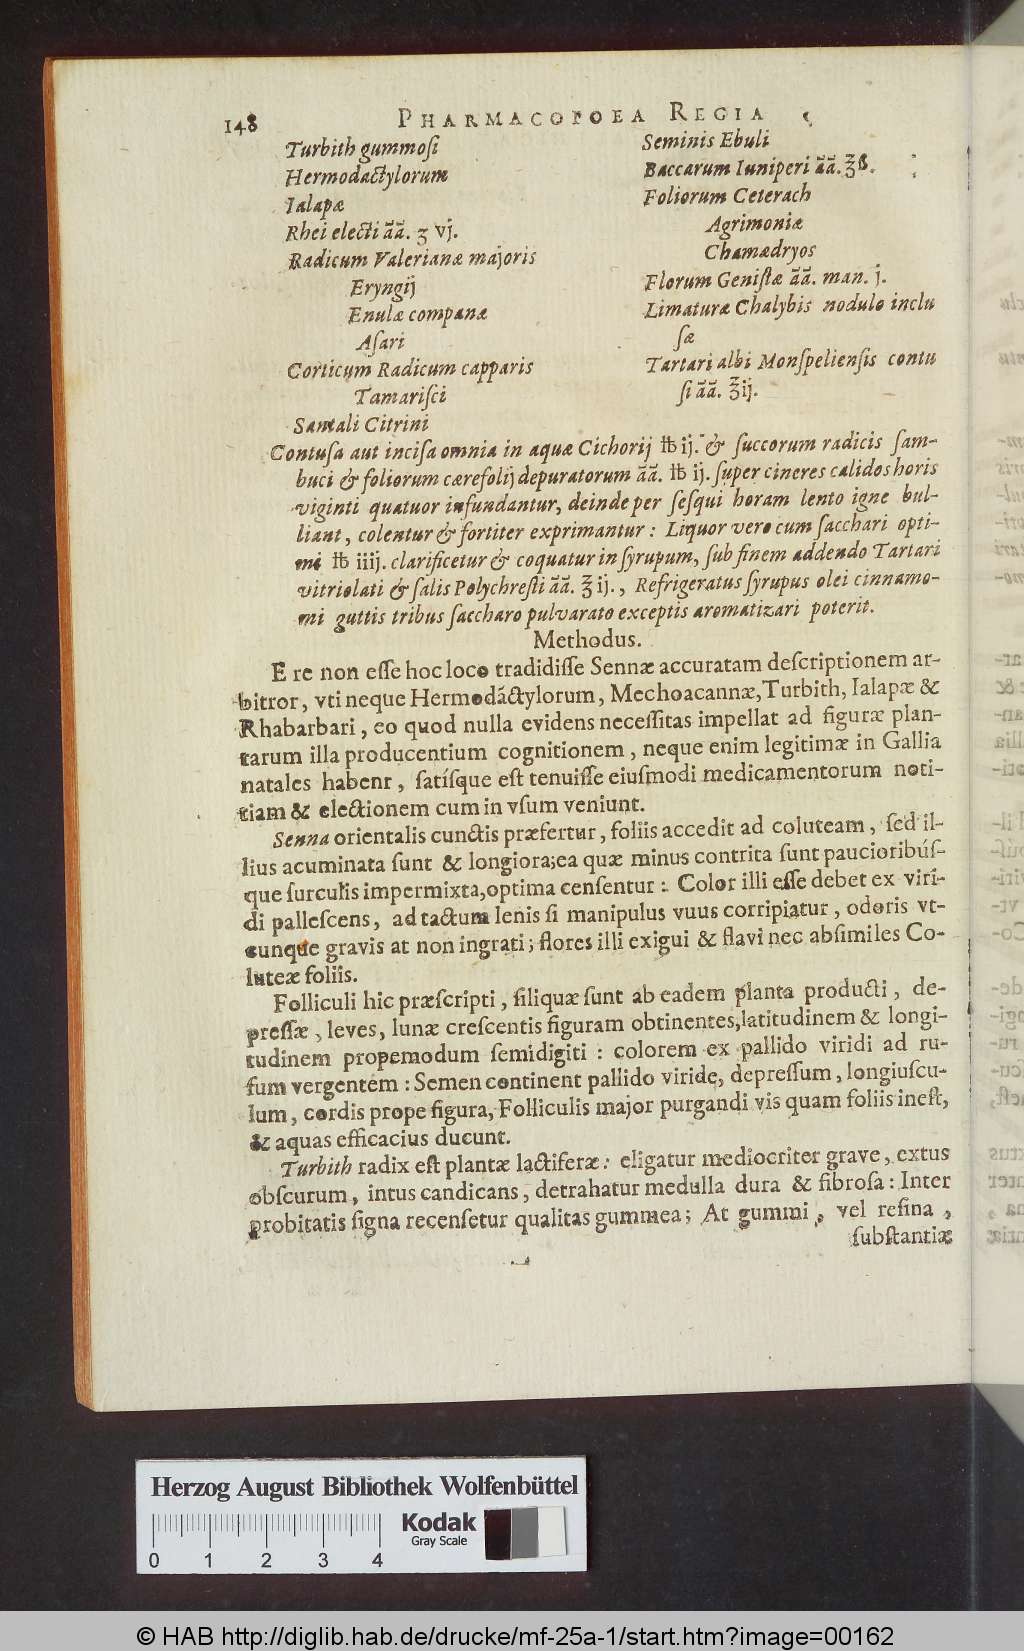 148 PHARMACOPOEA REGIA
Turbith gummoſi
Hermodactylorum
Ialapæ
Rhei electi ãã. ʒ vj.
Radicum Valerianæ majoris
Eryngij
Enulæ companæ
Aſari
Corticum Radicum capparis
Tamariſci
Santali Citrini
Seminis Ebuli
Baccarum Iuniperi ãã. ℥ß.
Foliorum Ceterach
Agrimoniæ
Chamædryos
Florum Geniſtæ ãã. man. j.
Limaturæ Chalybis nodulo inclu
ſæ
Tartari albi Monſpelienſis contu
ſi ãã. ℥ij.
Contuſa aut inciſa omnia in aquæ Cichorij ℔ ij. & ſuccorum radicis ſam-
buci & foliorum cærefolij depuratorum ãã. ℔ ij. ſuper cineres calidos horis
viginti quatuor infundantur, deinde per ſeſqui horam lento igne bul-
liant, colentur & fortiter exprimantur : Liquor vero cum ſacchari opti-
mi ℔ iiij. clarificetur & coquatur in ſyrupum, ſub finem addendo Tartari
vitriolati & ſalis Polychreſti ãã. ℥ ij., Refrigeratus ſyrupus olei cinnamo-
mi guttis tribus ſaccharo pulvarato exceptis aromatizari poterit.
Methodus.
E re non eſſe hoc loco tradidiſſe Sennæ accuratam deſcriptionem ar-
bitror, vti neque Hermodáctylorum, Mechoacannæ, Turbith, Ialapæ &
Rhabarbari, eo quod nulla evidens neceſſitas impellat ad figuræ plan-
tarum illa producentium cognitionem, neque enim legitimæ in Gallia
natales habenr, ſatíſque eſt tenuiſſe eiuſmodi medicamentorum noti-
tiam & electionem cum in vſum veniunt.
Senna orientalis cunctis præfertur, foliis accedit ad coluteam, ſed il-
lius acuminata ſunt & longiora; ea quæ minus contrita ſunt paucioribúſ-
que ſurculis impermixta, optima cenſentur : Color illi eſſe debet ex viri-
di palleſcens, ad tactum lenis ſi manipulus vuus corripiatur, odoris vt-
cunque gravis at non ingrati; flores illi exigui & flavi nec abſimiles Co-
luteæ foliis.
Folliculi hic præſcripti, ſiliquæ ſunt ab eadem planta producti, de-
preſſæ, leves, lunæ creſcentis figuram obtinentes, latitudinem & longi-
tudinem propemodum ſemidigiti : colorem ex pallido viridi ad ru-
fum vergentem : Semen continent pallido viride, depreſſum, longiuſcu-
lum, cordis prope figura, Folliculis major purgandi vis quam foliis ineſt,
& aquas efficacius ducunt.
Turbith radix eſt plantæ lactiferæ : eligatur mediocriter grave, extus
obſcurum, intus candicans, detrahatur medulla dura & fibroſa : Inter
probitatis ſigna recenſetur qualitas gummea; At gummi, vel reſina,
ſubſtantiæ
Herzog August Bibliothek Wolfenbüttel
Kodak
Gray Scale
0 1 2 3 4
© HAB http://diglib.hab.de/drucke/mf-25a-1/start.htm?image=00162